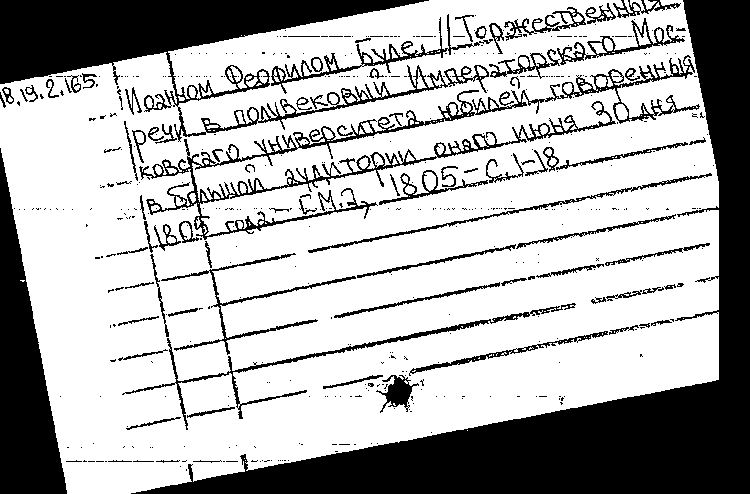 18.19.2.165.
Иоанном Феофилом Буле. // Торжественныя
речи в полувековий Императорского Мос-
ковскаго университета юбилей, говоренныя
в большой аудитории онаго июня 30 дня
1805 года. - [М.], 1805. - С. 1-18.